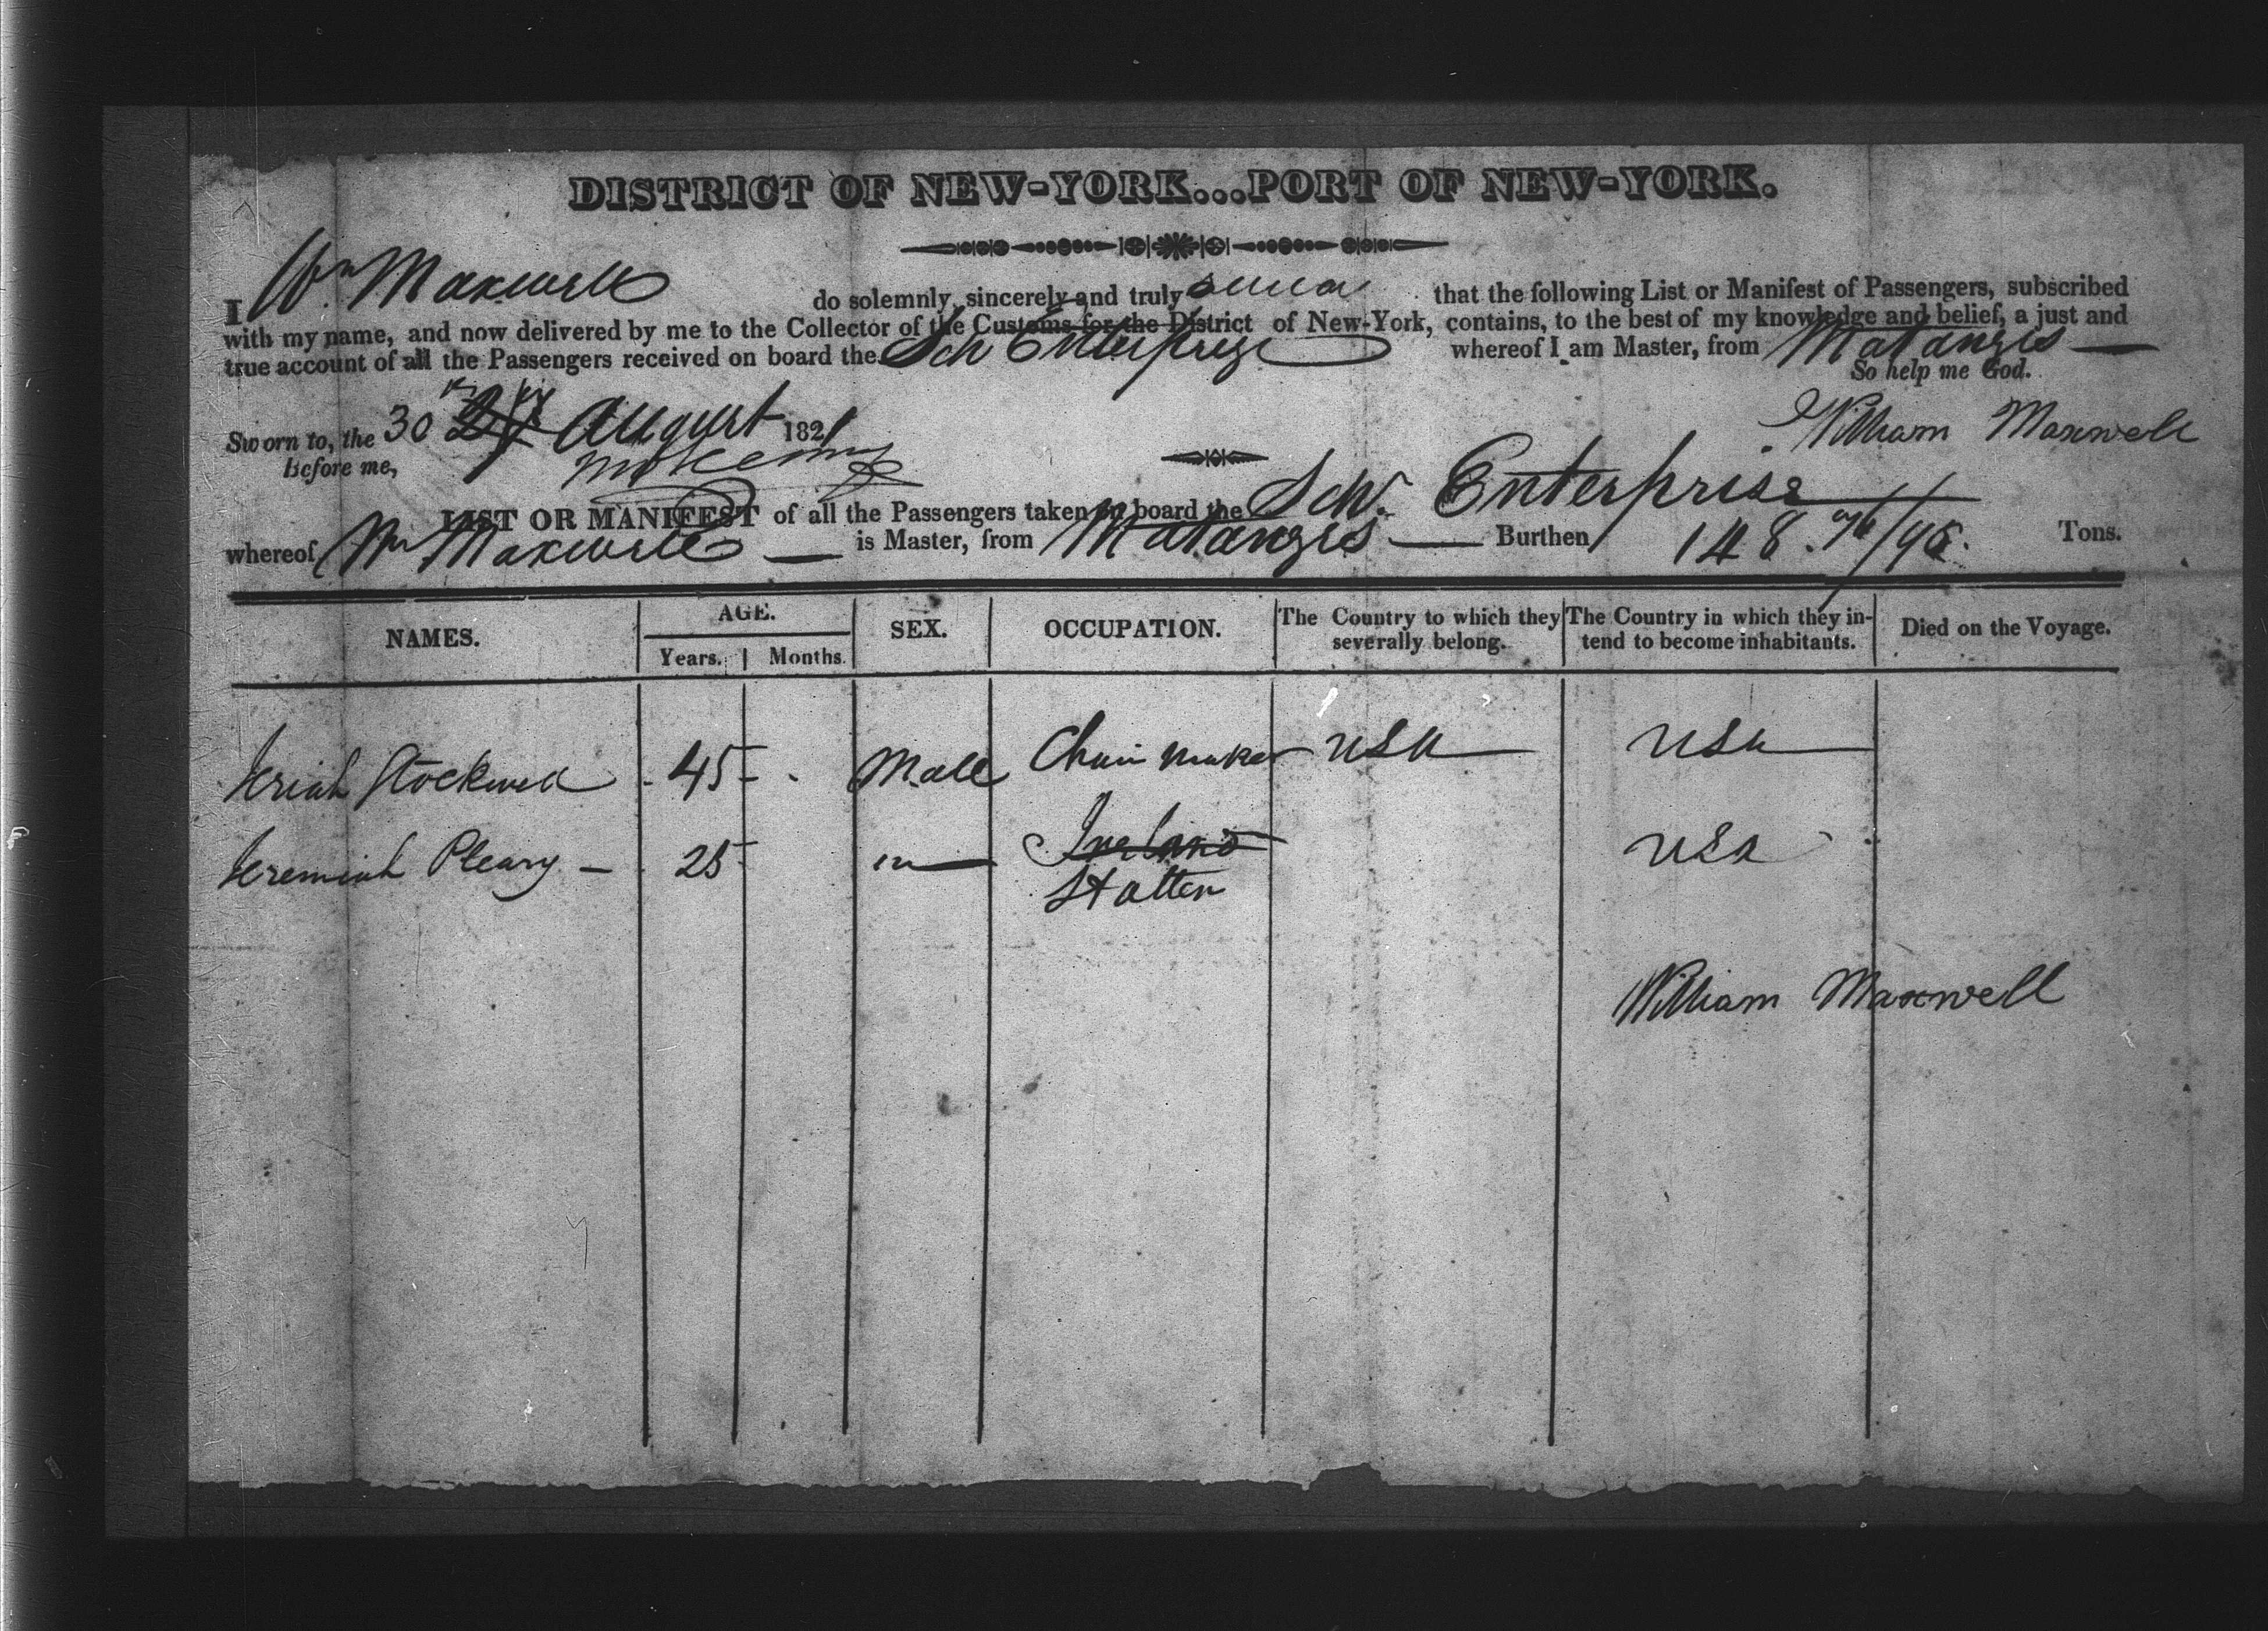 DISTRICT OF NEW-YORK...PORT OF NEW-YORK.
I Wm. Maxwell do solemnly, sincerely and truly swear that the following List or Manifest of Passengers, subscribed
with my name, and now delivered by me to the Collector of the Customs for the District of New-York, contains, to the best of my knowledge and belief, a just and
true account of all the Passengers received on board the Sch Enterprize whereof I am Master, from Matanzes
So help me God.
Sworn to, the 30 August 1821
William Maxwell
Before me,
LIST OR MANIFEST of all the Passengers taken on board the Schr. Enterprise
whereof Wm Maxwell is Master, from Matanzes Burthen 148. /95. Tons.
NAMES. AGE. SEX. OCCUPATION. The Country to which they severally belong. The Country in which they intend to become inhabitants. Died on the Voyage.
Years. Months.
Jeriah Stockwell 45 Male Chair Maker USA USA
Jeremiah Cleary 25 m Ireland USA
Hatter
William Maxwell